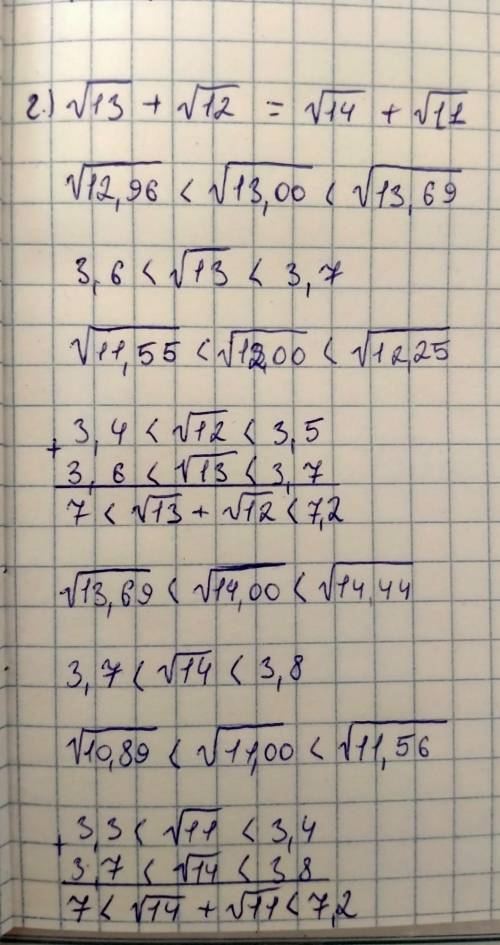 г.) √13 + √12 = √14 + √11
√12,96 < √13,00 < √13,69
3,6 < √13 < 3,7
√11,55 < √12,00 < √12,25
+ 3,4 < √12 < 3,5
3,6 < √13 < 3,7
7 < √13 + √12 < 7,2
√13,69 < √14,00 < √14,44
3,7 < √14 < 3,8
√10,89 < √11,00 < √11,56
+ 3,3 < √11 < 3,4
3,7 < √14 < 3 8
7 < √14 + √11 < 7,2